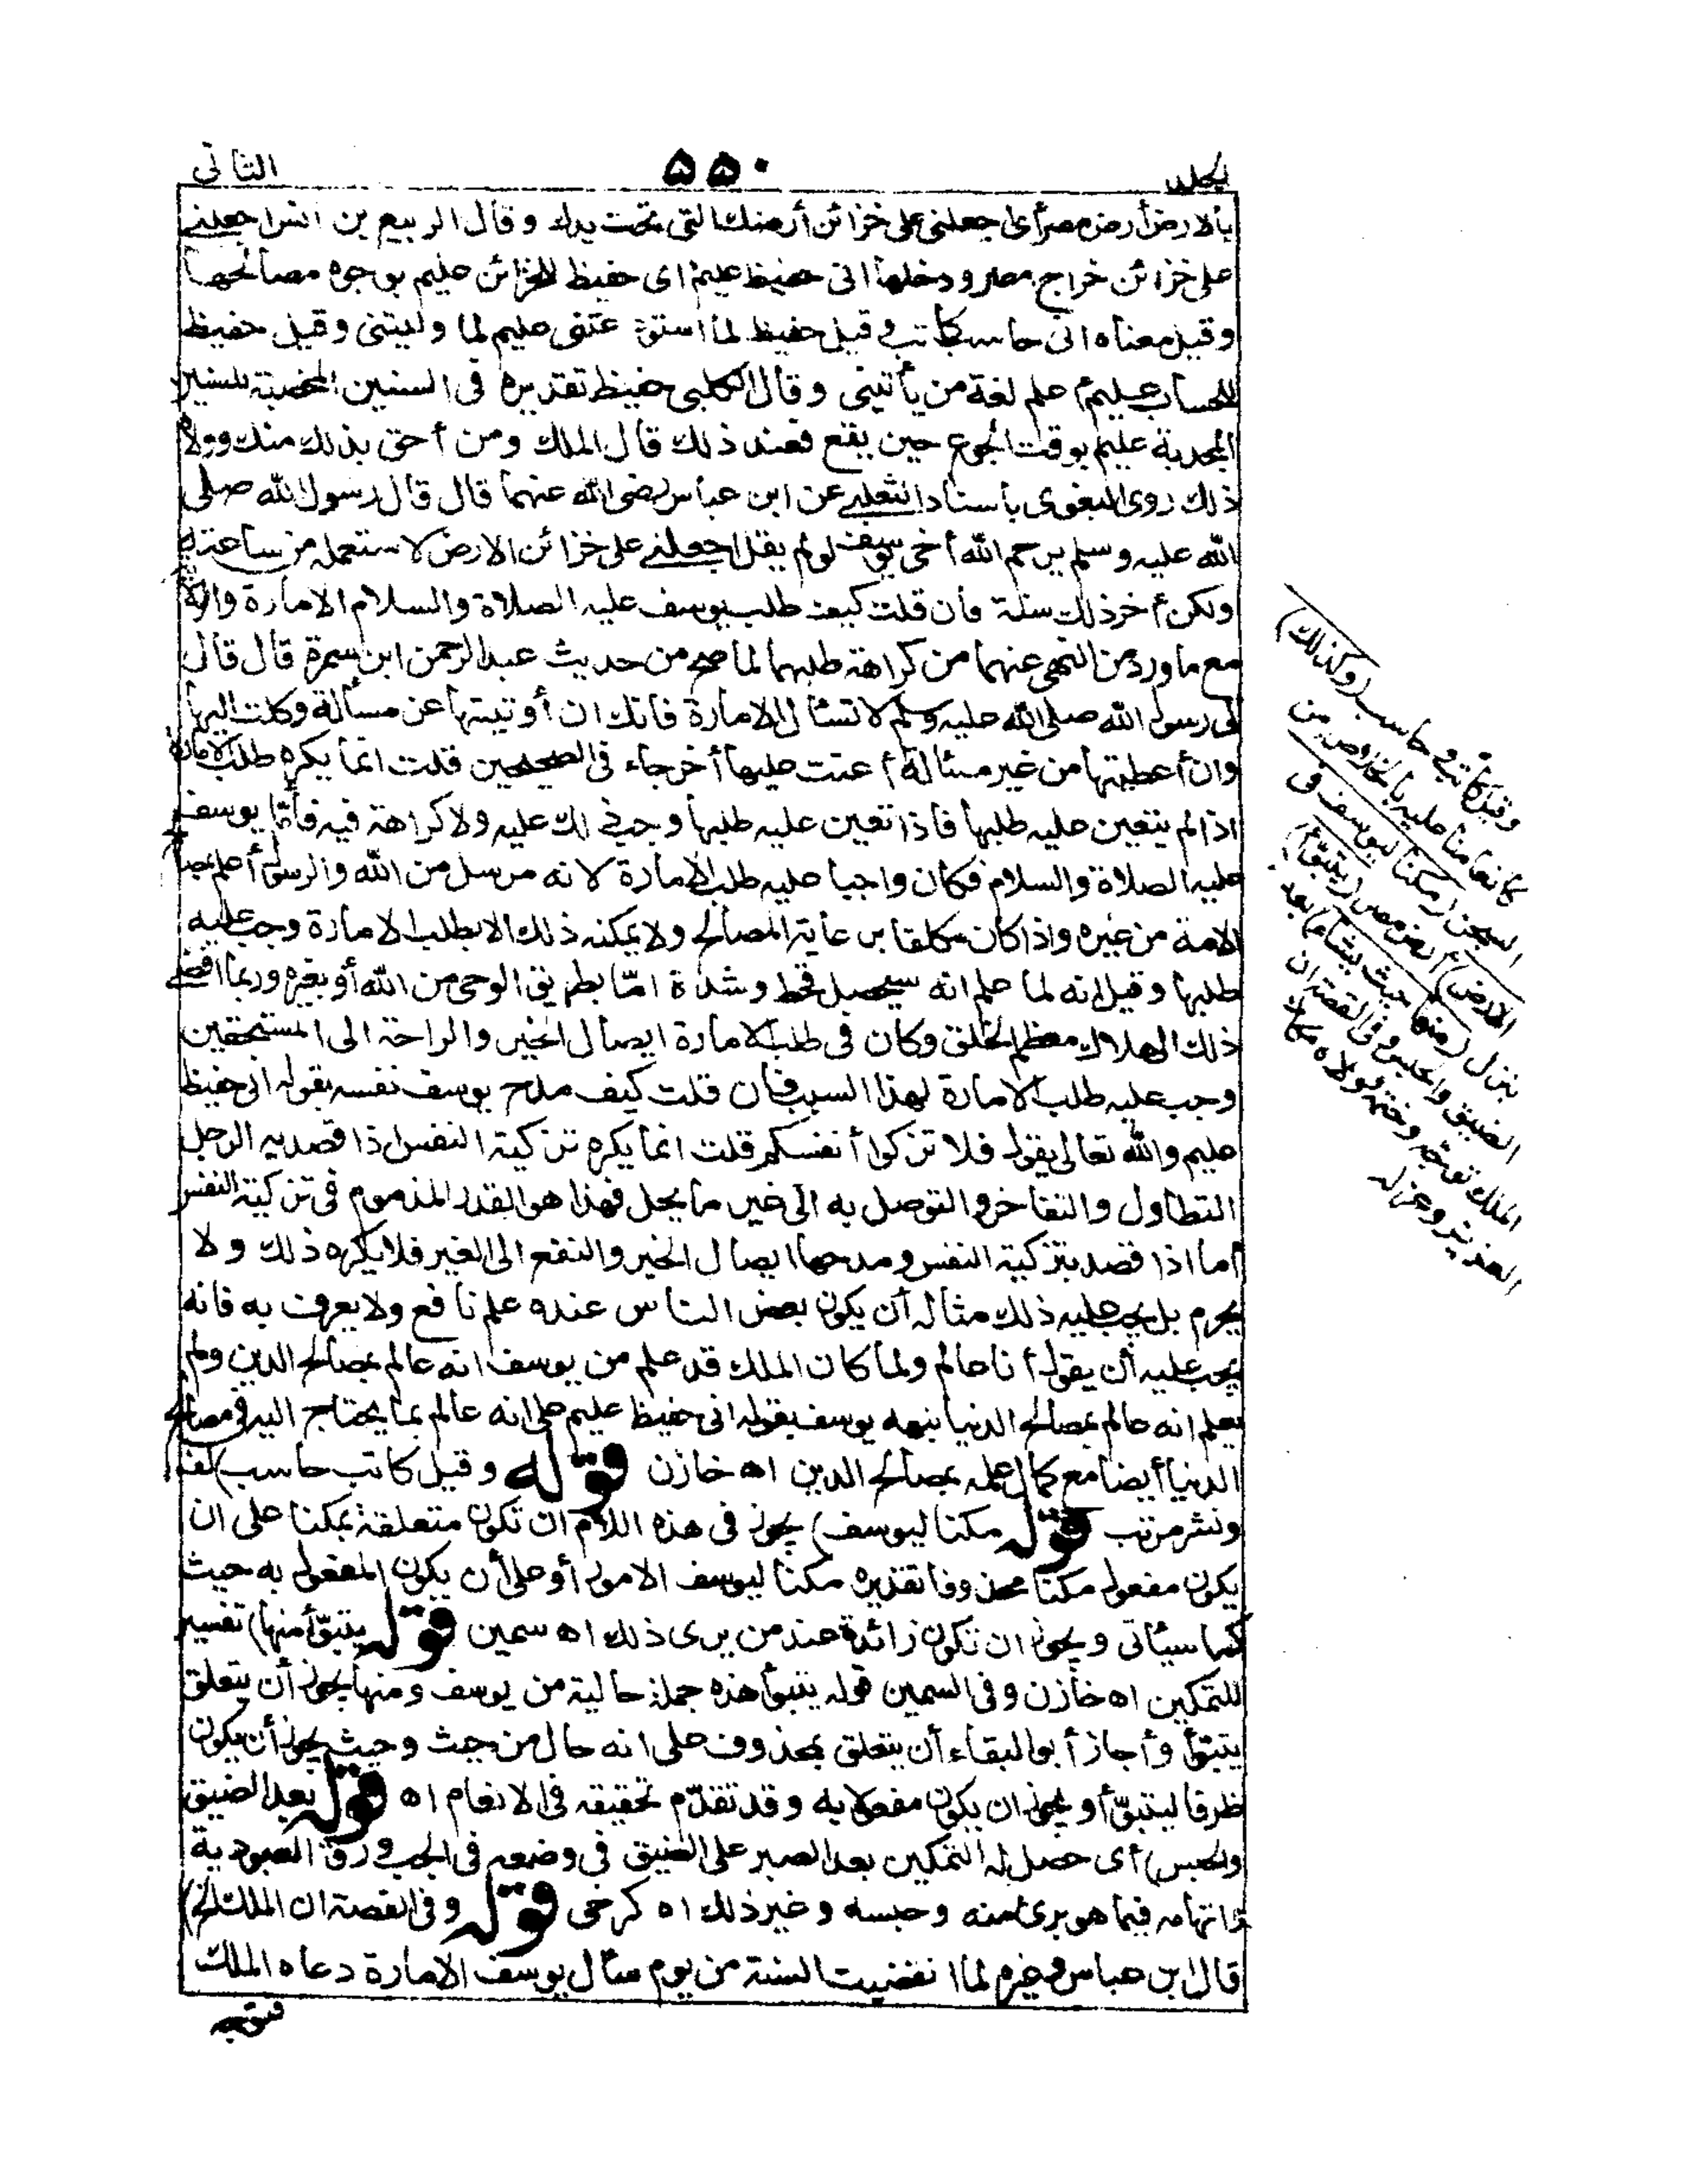 الجلد
۵۵۰
الثانى
بالارض أرض مصر أى اجعلنى على خزائن أرضك التى تحت يدك وقال الربيع بن انس اجعلنى
على خزائن خراج مصر ودخلها انى حفيظ عليم اى حفيظ للخزائن عليم بوجوه مصالحها
وقيل معناه انى حاسب كاتب وقيل حفيظ لما استودعتنى عليم لما وليتنى وقيل حفيظ
للحساب عليم أعلم لغة من يأتينى وقال الكلبى حفيظ تقديره فى السنين المخصبة للسنين
المجدبة عليم بوقت الجوع حين يقع فعند ذلك قال الملك ومن أحق بذلك منك وولاه
ذلك روى البغوى بأسناد الثعلبى عن ابن عباس رضى الله عنهما قال قال رسول الله صلى
الله عليه وسلم يرحم الله أخى يوسف لو لم يقل اجعلنى على خزائن الارض لاستعمله من ساعته
ولكن أخر ذلك سنة فان قلت كيف طلب يوسف عليه الصلاة والسلام الامارة والولاية
مع ما ورد من النهى عنهما من كراهة طلبهما لما صح من حديث عبد الرحمن ابن سمرة قال قال
لى رسول الله صلى الله عليه وسلم لا تسئال الامارة فانك ان أوتيتها عن مسألة وكلت اليها
وان أعطيتها من غير مسئالة أعنت عليها أخرجاه فى الصحيحين قلت انما يكره طلب الامارة
اذا لم يتعين عليه طلبها فاذا تعين عليه طلبها وجب ذلك عليه ولا كراهة فيه فأما يوسف
عليه الصلاة والسلام فكان واجبا عليه طلب الامارة لانه مرسل من الله والرسول أعلم بمصالح
الامة من غيره واذا كان مكلفا برعاية المصالح ولا يمكنه ذلك الا بطلب الامارة وجب عليه
طلبها وقيل انه لما علم انه سيحصل قحط وشدة امّا بطريق الوحى من الله أو بغيره وربما افضى
ذلك الى هلاك معظم الخلق وكان فى طلب الامارة ايصال الخير والراحة الى المستحقين
وجب عليه طلب الامارة لهذا السبب فان قلت كيف مدح يوسف نفسه بقوله انى حفيظ
عليم والله تعالى يقول فلا تزكوا أنفسكم قلت انما يكره تزكية النفس اذا قصد به الرجل
التطاول والتفاخر والتوصل به الى غير ما يحل فهذا هو القدر المذموم فى تزكية النفس
أما اذا قصد بتزكية النفس ومدحها ايصال الخير والنفع الى الغير فلا يكره ذلك ولا
يحرم بل يجب عليه ذلك مثاله أن يكون بعض الناس عنده علم نافع ولا يعرف به فانه
يجب عليه أن يقول أنا عالم ولما كان الملك قد علم من يوسف انه عالم بمصالح الدين ولم
يعلم انه عالم بمصالح الدنيا نبهه يوسف بقوله انى حفيظ عليم على انه عالم بما يحتاج اليه فى مصالح
الدنيا أيضا مع كمال علمه بمصالح الدين اه خازن قوله وقيل كاتب حاسب) لف
ونشر مرتب قوله مكنا ليوسف) يجوز فى هذه اللام ان تكون متعلقة بمكنا على ان
يكون مفعول مكنا محذوفا تقديره مكنا ليوسف الامور أو على أن يكون المفعول به حيث
كما سيئاتى ويجوز ان تكون زائدة عند من يرى ذلك اه سمين قوله يتبوّأ منها) تفسير
للتمكين اه خازن وفى السمين قوله يتبوأ هذه جملة حالية من يوسف ومنها يجوز أن يتعلق
بيتبوّأ وأجاز أبو البقاء أن يتعلق بمحذوف على انه حال من حيث وحيث يجوز أن يكون
ظرفا ليتبوّأ ويجوز ان يكون مفعولا به وقد تقدّم تحقيقه فى الانعام اه قوله بعد الضيق
والحبس) أى حصل له التمكين بعد الصبر على الضيق فى وضعه فى الجب ورق العبودية
واتهامه فيما هو برئ منه وحبسه وغير ذلك اه كرخى قوله وفى القصة ان الملك الخ)
قال ابن عباس وغيره لما انقضيت السنة من يوم سئال يوسف الامارة دعاه الملك
فتوجه
وقيل كاتب وحاسب (وكذلك)
كانعامنا عليه بالخلاص من
السجن (مكنا ليوسف فى
الارض) أرض مصر (يتبوّأ)
ينزل (منها حيث يشاء) بعد
الضيق والحبس وفى القصة ان
الملك توّجه وختمه وولاه مكان
العزيز وعزله